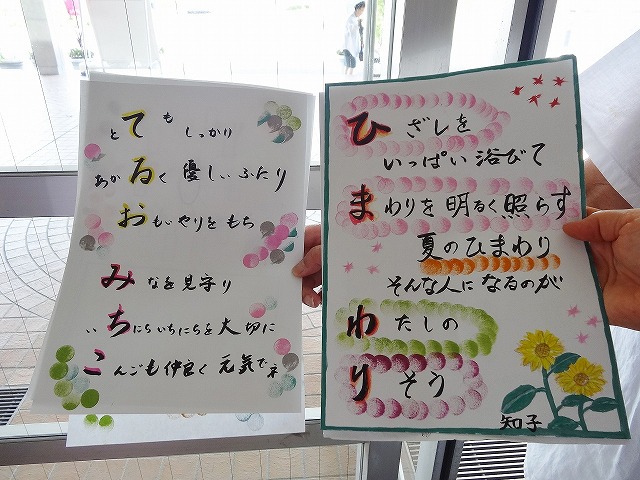 とてもしっかり
あかるく優しいふたり
おもいやりをもち
みなを見守り
いちにちいちにちを大切に
こんごも仲良く元気でネ
ひざしを
いっぱい浴びて
まわりを明るく照らす
夏のひまわり
そんな人になるのが
わたしの
りそう
知子